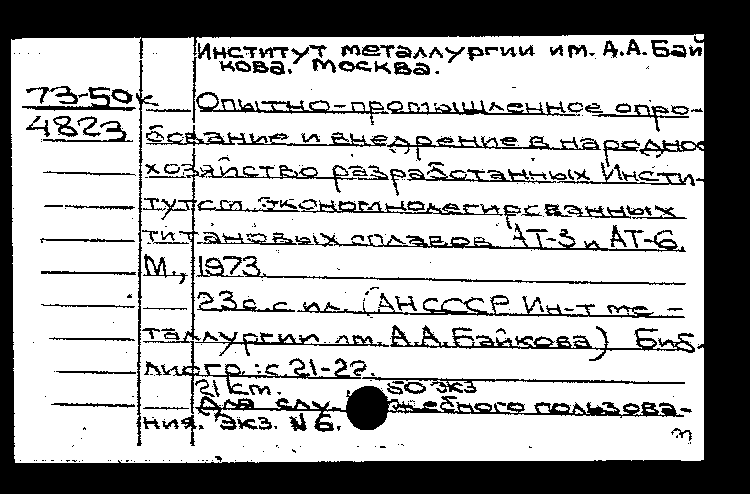 Институт металлургии им. А.А. Бай
кова. Москва.
73-50к Опытно-промышленное опро-
4823 бование и внедрение в народное
хозяйство разработанных Инсти-
тутом экономнолегированных
титановых сплавов АТ-3 и АТ-6.
М., 1973.
23с. с ил. (АН СССР. Ин-т ме-
таллургии им. А.А. Байкова) Биб-
лиогр.: с. 21-22.
21 см. 50 экз
Для служебного пользова-
ния. Экз. N 6.